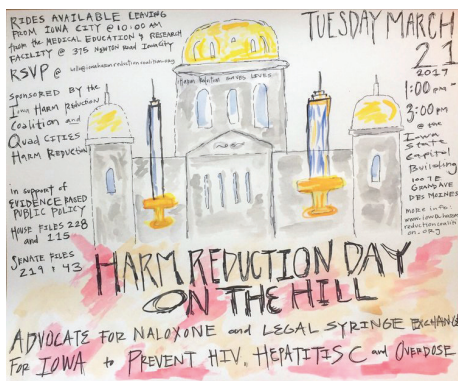 RIDES AVAILABLE LEAVING
FROM IOWA CITY @ 10:00 AM
from the MEDICAL EDUCATION & RESEARCH
FACILITY @ 375 NEWTON ROAD Iowa City
RSVP @ info@iowaharmreductioncoalition.org
SPONSORED BY the
Iowa HARM REDUCTION
COALITION and
QUAD CITIES
HARM REDUCTION
IN SUPPORT OF
EVIDENCE BASED
PUBLIC POLICY
HOUSE FILES 228
and 115
SENATE FILES
219 & 43
Harm Reduction SAVES LIVES
TUESDAY MARCH
21
2017
1:00 pm -
3:00 pm
@ the
Iowa
STATE
CAPITOL
Building
1007 E
GRAND AVE
DES MOINES
MORE INFO:
www.iowaharm
reductioncoaliti
on.ORG
HARM REDUCTION DAY
ON THE HILL
ADVOCATE FOR NALOXONE and LEGAL SYRINGE EXCHANGE
FOR IOWA to PREVENT HIV, HEPATITIS C and OVERDOSE